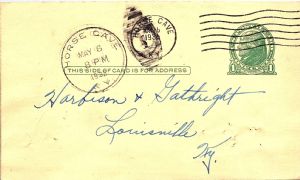 HORSE CAVE
MAY 6
8 PM
KY.
HORSE CAVE
THIS SIDE OF CARD IS FOR ADDRESS
Harbison & Gathright
Louisville
Ky.